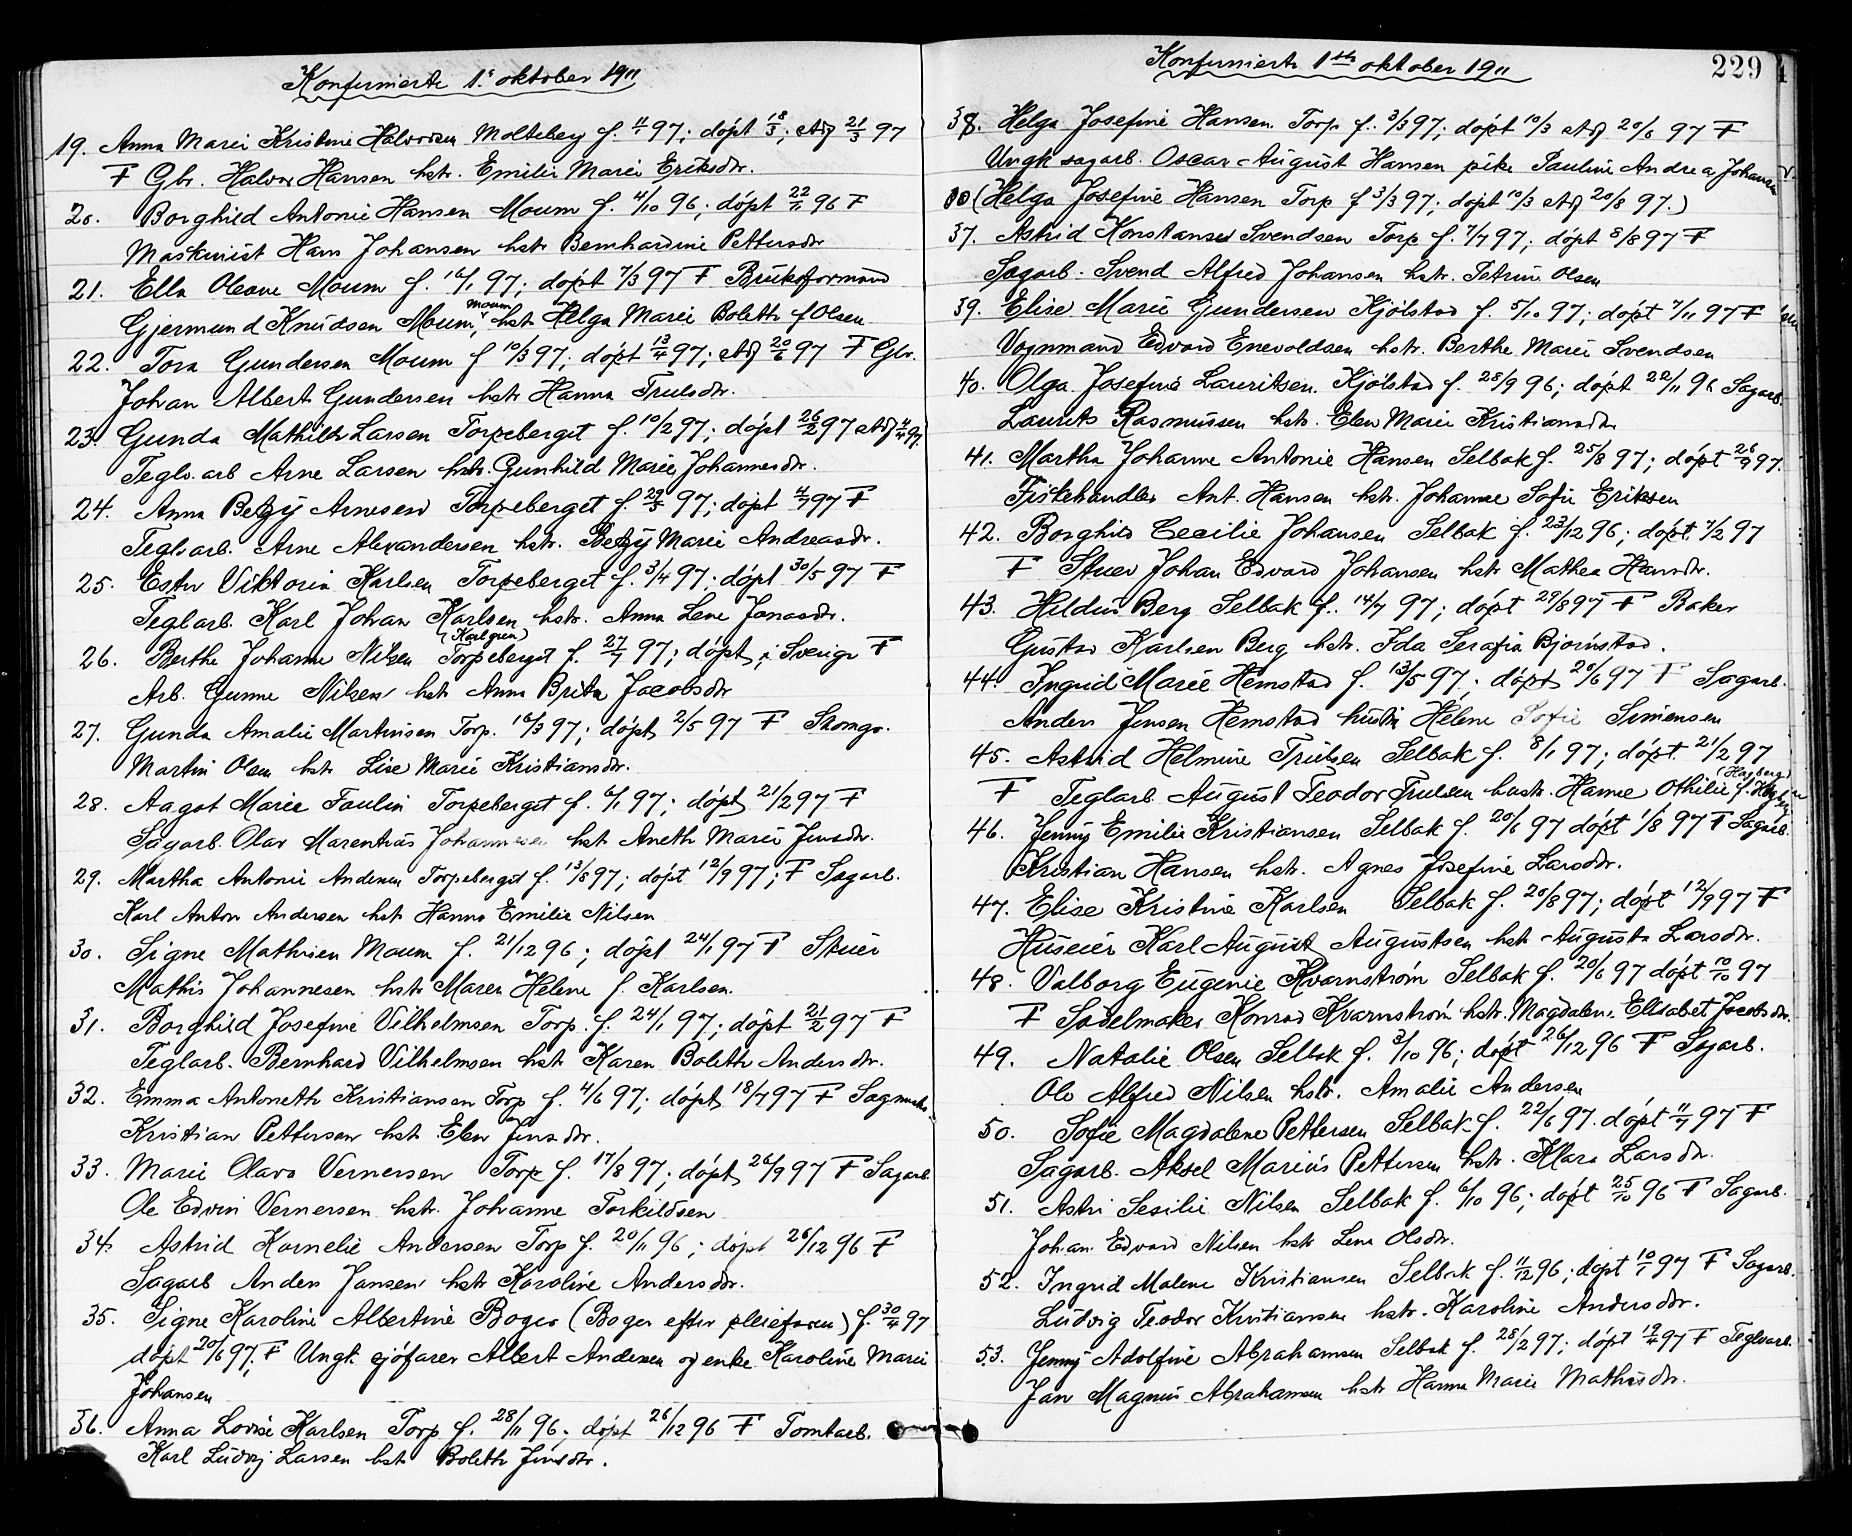 Konfirmerte 1ste oktober 1911
19. Anna Marie Kristine Halvorsen Moltebey f. 97; døpt 18/3; atg 21/3 97
F Gbr. Halvor Hansen hstr. Emilie Marie Eriksdtr.
20. Borghild Antonie Hansen Moum f. 4/10 96; døpt 22/11 96 F
Maskinist Hans Johansen hstr Bernhardine Pettersdtr
21. Ella Oleane Moum f. 16/1 97; døpt 7/3 97 F Bruksformand
Gjermund Knudsen Moum, hstr Helga Marie Bolette f Olsen
22. Tora Gundersen Moum f 10/3 97; døpt 13/4 97; atg 20/6 97 F Gbr.
Johan Albert Gundersen hstr Hanna Trulsdtr.
23. Gunda Mathilde Larsen Torpeberget f. 10/2 97; døpt 26/2 97 atg 4/4 97.
Teglv.arb Arne Larsen hstr. Gunhild Marie Johannesdtr.
24. Anna Betzy Arnesen Torpeberget f. 29/5 97; døpt 4/7 97 F
Teglv.arb. Arne Alexandersen hstr. Betzy Marie Andreasdtr.
25. Ester Viktoria Karlsen Torpeberget f. 3/4 97. døpt 30/5 97 F
Teglarb. Karl Johan Karlsen hstr. Anna Lene Jonasdtr.
(Karlgren)
26. Berthe Johanne Nilsen Torpeberget f. 27/7 97; døpt i Sverige F
Arb. Gunne Nilsen hstr Anna Brita Jacobsdtr
27. Gunda Amalie Martinsen Torp. 16/3 97; døpt 2/5 97 F Skomgr.
Martin Olsen hstr Lise Marie Kristiansdtr.
28. Aagot Marie Paulin Torpeberget f. 6/1 97; døpt 21/2 97 F
Sagarb. Olav Marentius Johannesen hstr Aneth Marie Jensdtr.
29. Martha Antonie Andersen Torpeberget f. 13/8 97; døpt 12/9 97; F Sagarb.
Karl Anton Andersen hstr Hanna Emilie Nilsen
30. Signe Mathisen Moum f. 21/12 96; døpt 24/1 97 F Stuer
Mathis Johannesen hstr Maren Helene f. Karlsen.
31. Borghild Josefine Vilhelmsen Torp. f. 24/1 97; døpt 21/2 97 F
Teglarb. Bernhard Vilhelmsen hstr Karen Bolette Andersdtr.
32. Emma Antonette Kristiansen Torp f. 4/6 97; døpt 18/7 97 F
Kristian Pettersen hstr. Elen Jensdtr.
33. Marie Olava Vernersen Torp f. 17/8 97; døpt 26/9 97 F Sagarb
Ole Edvin Vernersen hstr. Johanne Torkildsen
34. Astrid Kornelie Andersen Torp f. 20/11 96; døpt 26/12 96 F
Sagarb Anders Jansen hstr Karoline Andersdtr.
35. Signe Karoline Albertine Boger (Boger efter pleiefaren) f. 30/4 97
døpt 20/6 97. F Ungk. sjöfarer Albert Andersen og enke Karoline Marie
Johansen
36. Anna Lovise Karlsen Torp f. 28/11 96; døpt 26/12 96 F Tomtarb.
Karl Ludvig Larsen hstr Bolette Jensdtr.
Konfirmerte 1ste oktober 1911
229
38. Helga Josefine Hansen Torp f. 3/3 97; døpt 10/3 atg 20/6 97 F
Ungk sagarb. Oscar August Hansen pike Pauline Andrea Johansen
(Helga Josefine Hansen Torp f 3/3 97; døpt 10/3 atg 20/8 97.)
37. Astrid Konstanse Svendsen Torp f. 7/7 97; døpt 8/8 97 F
Sagarb. Svend Alfred Johansen hstr. Petrine Olsen
39. Elise Marie Gundersen Kjölstad f. 5/10 97; døpt 7/11 97 F
Vognmand Edvard Enevoldsen hstr. Berthe Marie Svendsen
40. Olga Josefine Lauritsen Kjölstad f. 28/9 96; døpt 22/11 96 Sagarb
Laurits Rasmussen hstr. Elen Marie Kristiansdtr
41. Martha Johanne Antonie Hansen Selbak f. 25/8 97; døpt 26/9 97.
Fiskehandler Ant. Hansen hstr. Johanne Sofie Eriksen
42. Borghild Cecilie Johansen Selbak f. 23/12 96; døpt 7/2 97
F Stuer Johan Edvard Johansen hstr Mathea Hansdtr.
43. Hildur Berg Selbak f. 14/7 97; døpt 29/8 97 F Baker
Gustav Karlsen Berg hstr. Ida Serafia Bjørnstad.
44. Ingrid Marie Hemstad f. 13/5 97; døpt 20/6 97 F Sagarb.
Anders Jensen Hemstad hustru Helene Sofie Simensen
45. Astrid Helmine Trulsen Selbak f. 8/1 97; døpt 21/2 97
F Teglarb August Teodor Trulsen hustr. Hanne Othilie f.
46. Jenny Emilie Kristiansen Selbak f. 20/6 97 døpt 1/8 97 F Sagarb.
Kristian Hansen hstr. Agnes Josefine Larsdtr.
47. Elise Kristine Karlsen Selbak f. 20/8 97; døpt 12/9 97 F
Huseier Karl August Augustsen hstr Augusta Larsdtr.
48. Valborg Eugenie Kvarnström Selbak f. 20/6 97 døpt 10/10 97
F Sadelmaker Konrad Kvarnström hstr. Magdalene Elisabet Jacobsdtr.
49. Natalie Olsen Selbak f. 3/10 96; døpt 26/12 96 F Sagarb.
Ole Alfred Nilsen hstr. Amalie Andersen
50. Sofie Magdalene Pettersen Selbak f. 22/6 97. døpt 11/7 97 F
Sagarb. Aksel Marius Pettersen hstr. Klara Larsdtr.
51. Astri Sesilie Nilsen Selbak f. 6/10 96; døpt 25/10 96 F Sagarb.
Johan Edvard Nilsen hstr Lena Olsdtr.
52. Ingrid Malene Kristiansen Selbak f. 11/12 96; døpt 10/1 97 F Sagarb.
Ludvig Teodor Kristiansen hstr. Karoline Andersdtr.
53. Jenny Adolfine Abrahamsen Selbak f. 28/2 97; døpt 19/4 97 F Teglvarb.
Jan Magnus Abrahamsen hstr Hanna Marie Mathisdtr.